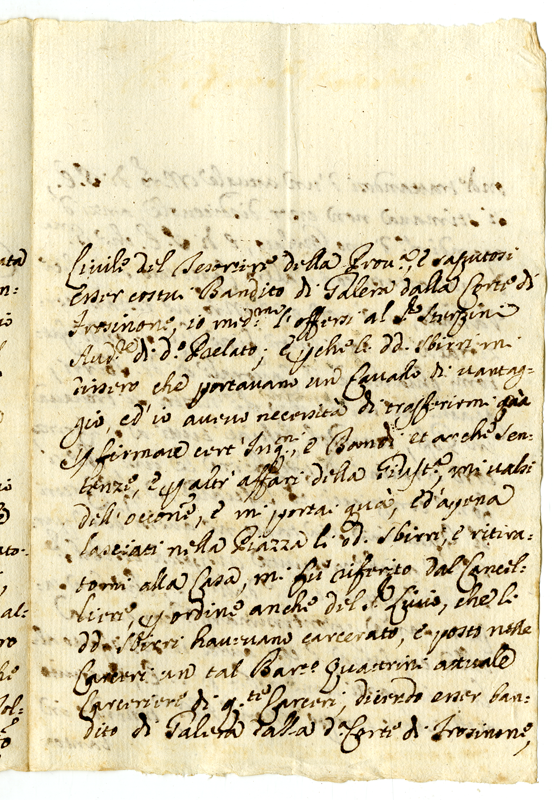 Civile del Tesoriere della Prov.ª, e saputosi
esser costui Bandito di Galera dalla Corte di
Frosinone, io med.mo l'offersi al S.r Sterpini
Aud.re di d.º Prelato; e perche li dd. Sbirri mi
dissero che portavano un Cavallo di vantag-
gio, ed' io avevo necessità di trasferirmi quà
p firmare cert' Inq.ni, e Bandi et anche Sen-
tenze, e p altr' affari della Giust.ª, mi valsi
dell' occone, e mi portai quà, ed' apena
lasciati nella Piazza li dd. Sbirri, e ritira-
tomi alla Casa, mi fù riferito dal Cancel-
liere, p ordine anche del S.r Livio, che li
dd. Sbirri havevano carcerato, e posto nelle
Carceri un tal Bar.º Quattrini attuale
Carceriere di q.te Carceri, dicendo esser ban-
dito di Galera dalla d.ª Corte di Frosinone,